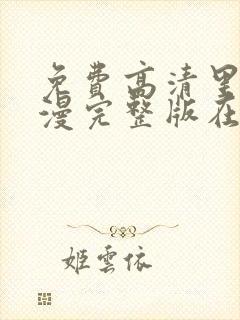 免费高清里
漫完整版在
姬云依